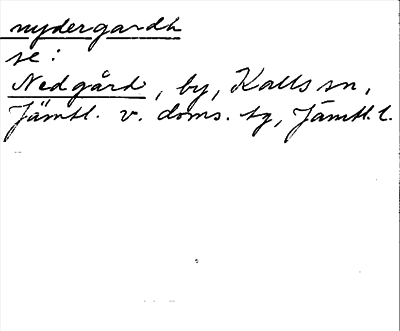 nydergardh
se:
Nedgård, by, Kalls sn,
Jämtl. v. doms. tg, Jämtl. l.